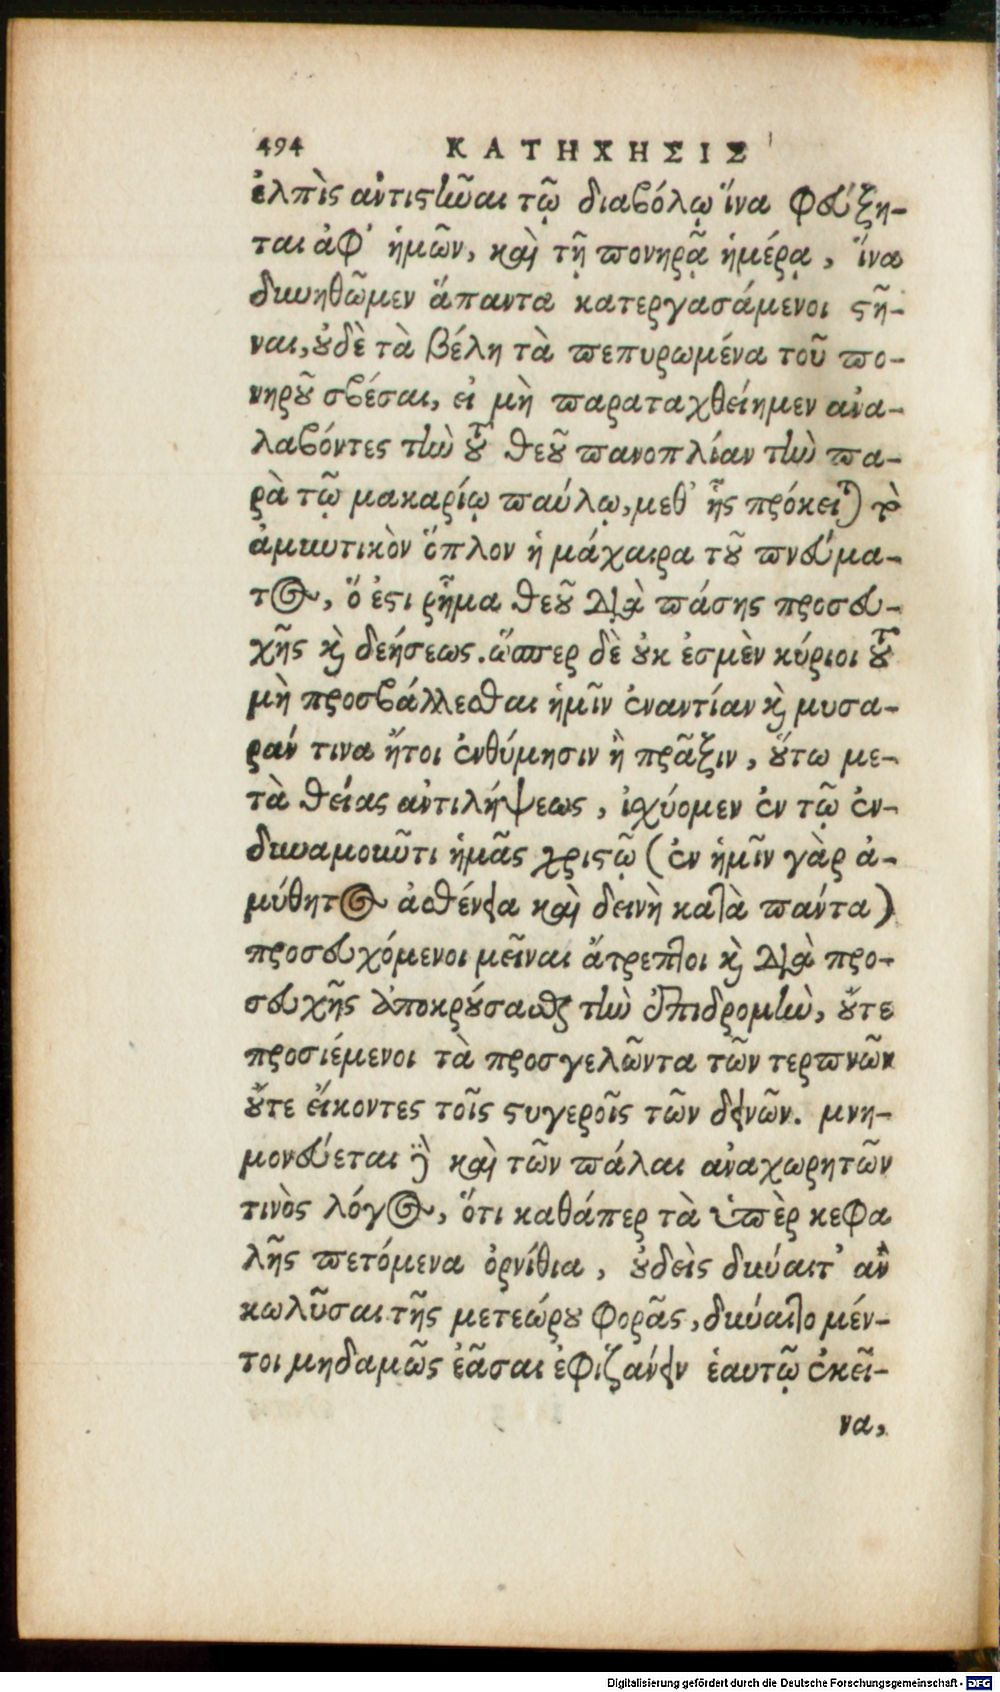 494 ΚΑΤΗΧΗΣΙΣ
ἐλπὶς ἀντιστῆναι τῷ διαβόλῳ ἵνα φεύξη-
ται ἀφ' ἡμῶν, καὶ τῇ πονηρᾷ ἡμέρᾳ, ἵνα
δυνηθῶμεν ἅπαντα κατεργασάμενοι στῆ-
ναι, οὐδὲ τὰ βέλη τὰ πεπυρωμένα τοῦ πο-
νηροῦ σβέσαι, εἰ μὴ παραταχθείημεν ἀνα-
λαβόντες τὴν τοῦ θεοῦ πανοπλίαν τὴν πα-
ρὰ τῷ μακαρίῳ παύλῳ, μεθ' ἧς πρόκειται τὸ
ἀμυντικὸν ὅπλον ἡ μάχαιρα τοῦ πνεύμα-
τος, ὅ ἐστι ῥῆμα θεοῦ διὰ πάσης προσευ-
χῆς καὶ δεήσεως. ὥσπερ δὲ οὐκ ἐσμὲν κύριοι τοῦ
μὴ προσβάλλεσθαι ἡμῖν ἐναντίαν καὶ μυσα-
ράν τινα ἤτοι ἐνθύμησιν ἢ πρᾶξιν, οὕτω με-
τὰ θείας ἀντιλήψεως, ἰσχύομεν ἐν τῷ ἐν-
δυναμοῦντι ἡμᾶς χριστῷ (ἐν ἡμῖν γὰρ ἀ-
μύθητος ἀσθένεια καὶ δεινὴ κατὰ πάντα)
προσευχόμενοι μεῖναι ἄτρεπτοι καὶ διὰ προ-
σευχῆς ἀποκρούσασθαι τὴν ἐπιδρομὴν, οὔτε
προσιέμενοι τὰ προσγελῶντα τῶν τερπνῶν
οὔτε εἴκοντες τοῖς στυγεροῖς τῶν δεινῶν. μνη-
μονεύεται γὰρ καὶ τῶν πάλαι ἀναχωρητῶν
τινὸς λόγος, ὅτι καθάπερ τὰ ὑπὲρ κεφα
λῆς πετόμενα ὀρνίθια, οὐδεὶς δύναιτ' ἂν
κωλῦσαι τῆς μετεώρου φορᾶς, δύναιτο μέν-
τοι μηδαμῶς ἐᾶσαι ἐφιζάνειν ἑαυτῷ ἐκεῖ-
να,
Digitalisierung gefördert durch die Deutsche Forschungsgemeinschaft - DFG